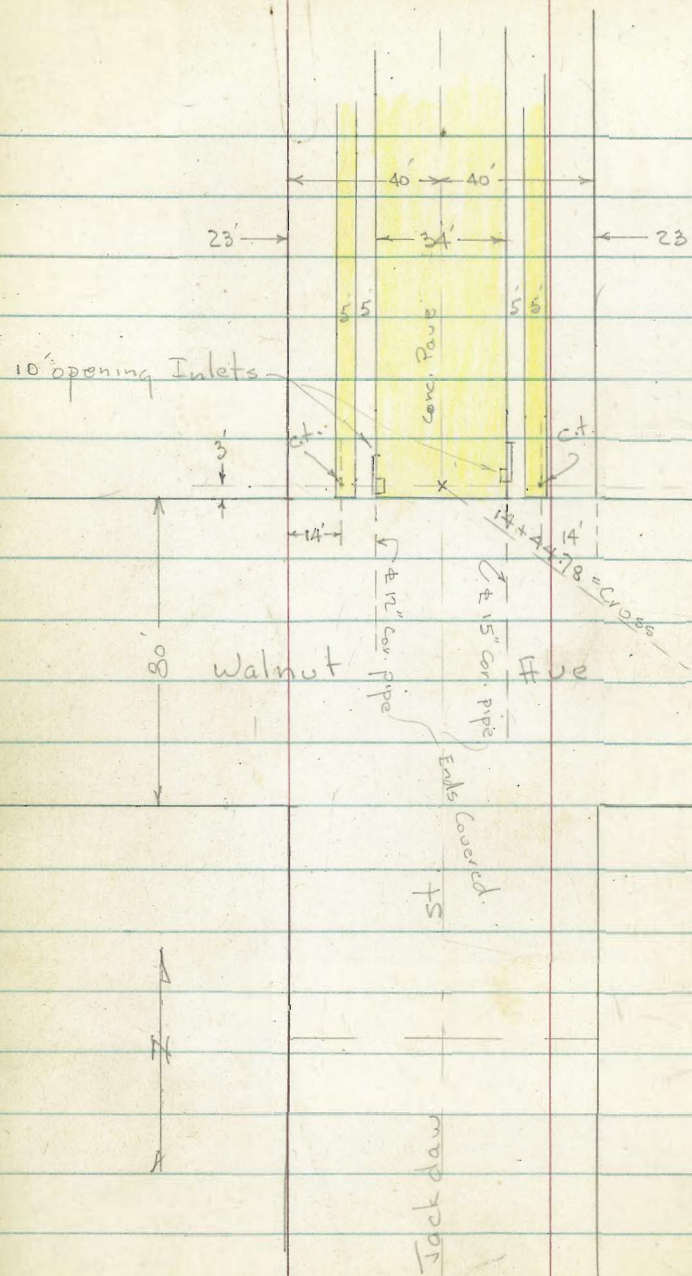 40' 40'
23' 34' 23
5' 5' 5' 5'
Conc. Pave
10' opening Inlets
3'
Ct.
Ct.
14'
14'
14+44.78 = Cross
80'
Walnut Ave
⅊ 12" Cor. pipe
⅊ 15" Cor. pipe
Ends Covered.
Jackdaw St
N